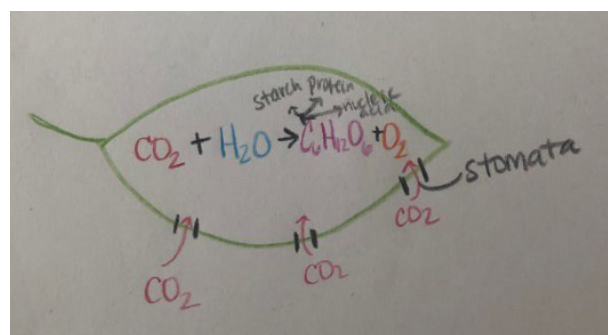 starch protein
nucleic acid
CO₂ + H₂O → C₆H₁₂O₆ + O₂
stomata
CO₂
CO₂
CO₂